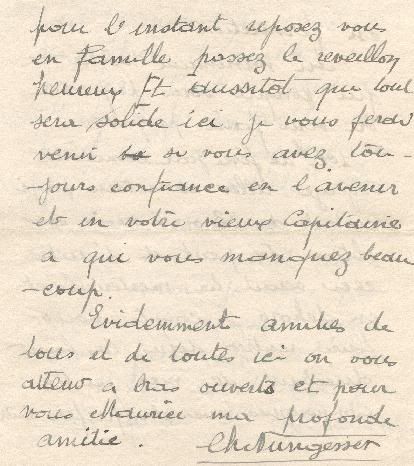 pour l'instant reposez vous
en famille passez le reveillon
heureux Et aussitot que tout
sera solide ici je vous ferai
venir si vous avez tou-
-jours confiance en l'avenir
et en votre vieux Capitaine
a qui vous manquez beau
-coup.
Evidemment amities de
tous et de toutes ici on vous
attend a bras ouverts et pour
vous Maurice ma profonde
amitie. Ch Nungesser